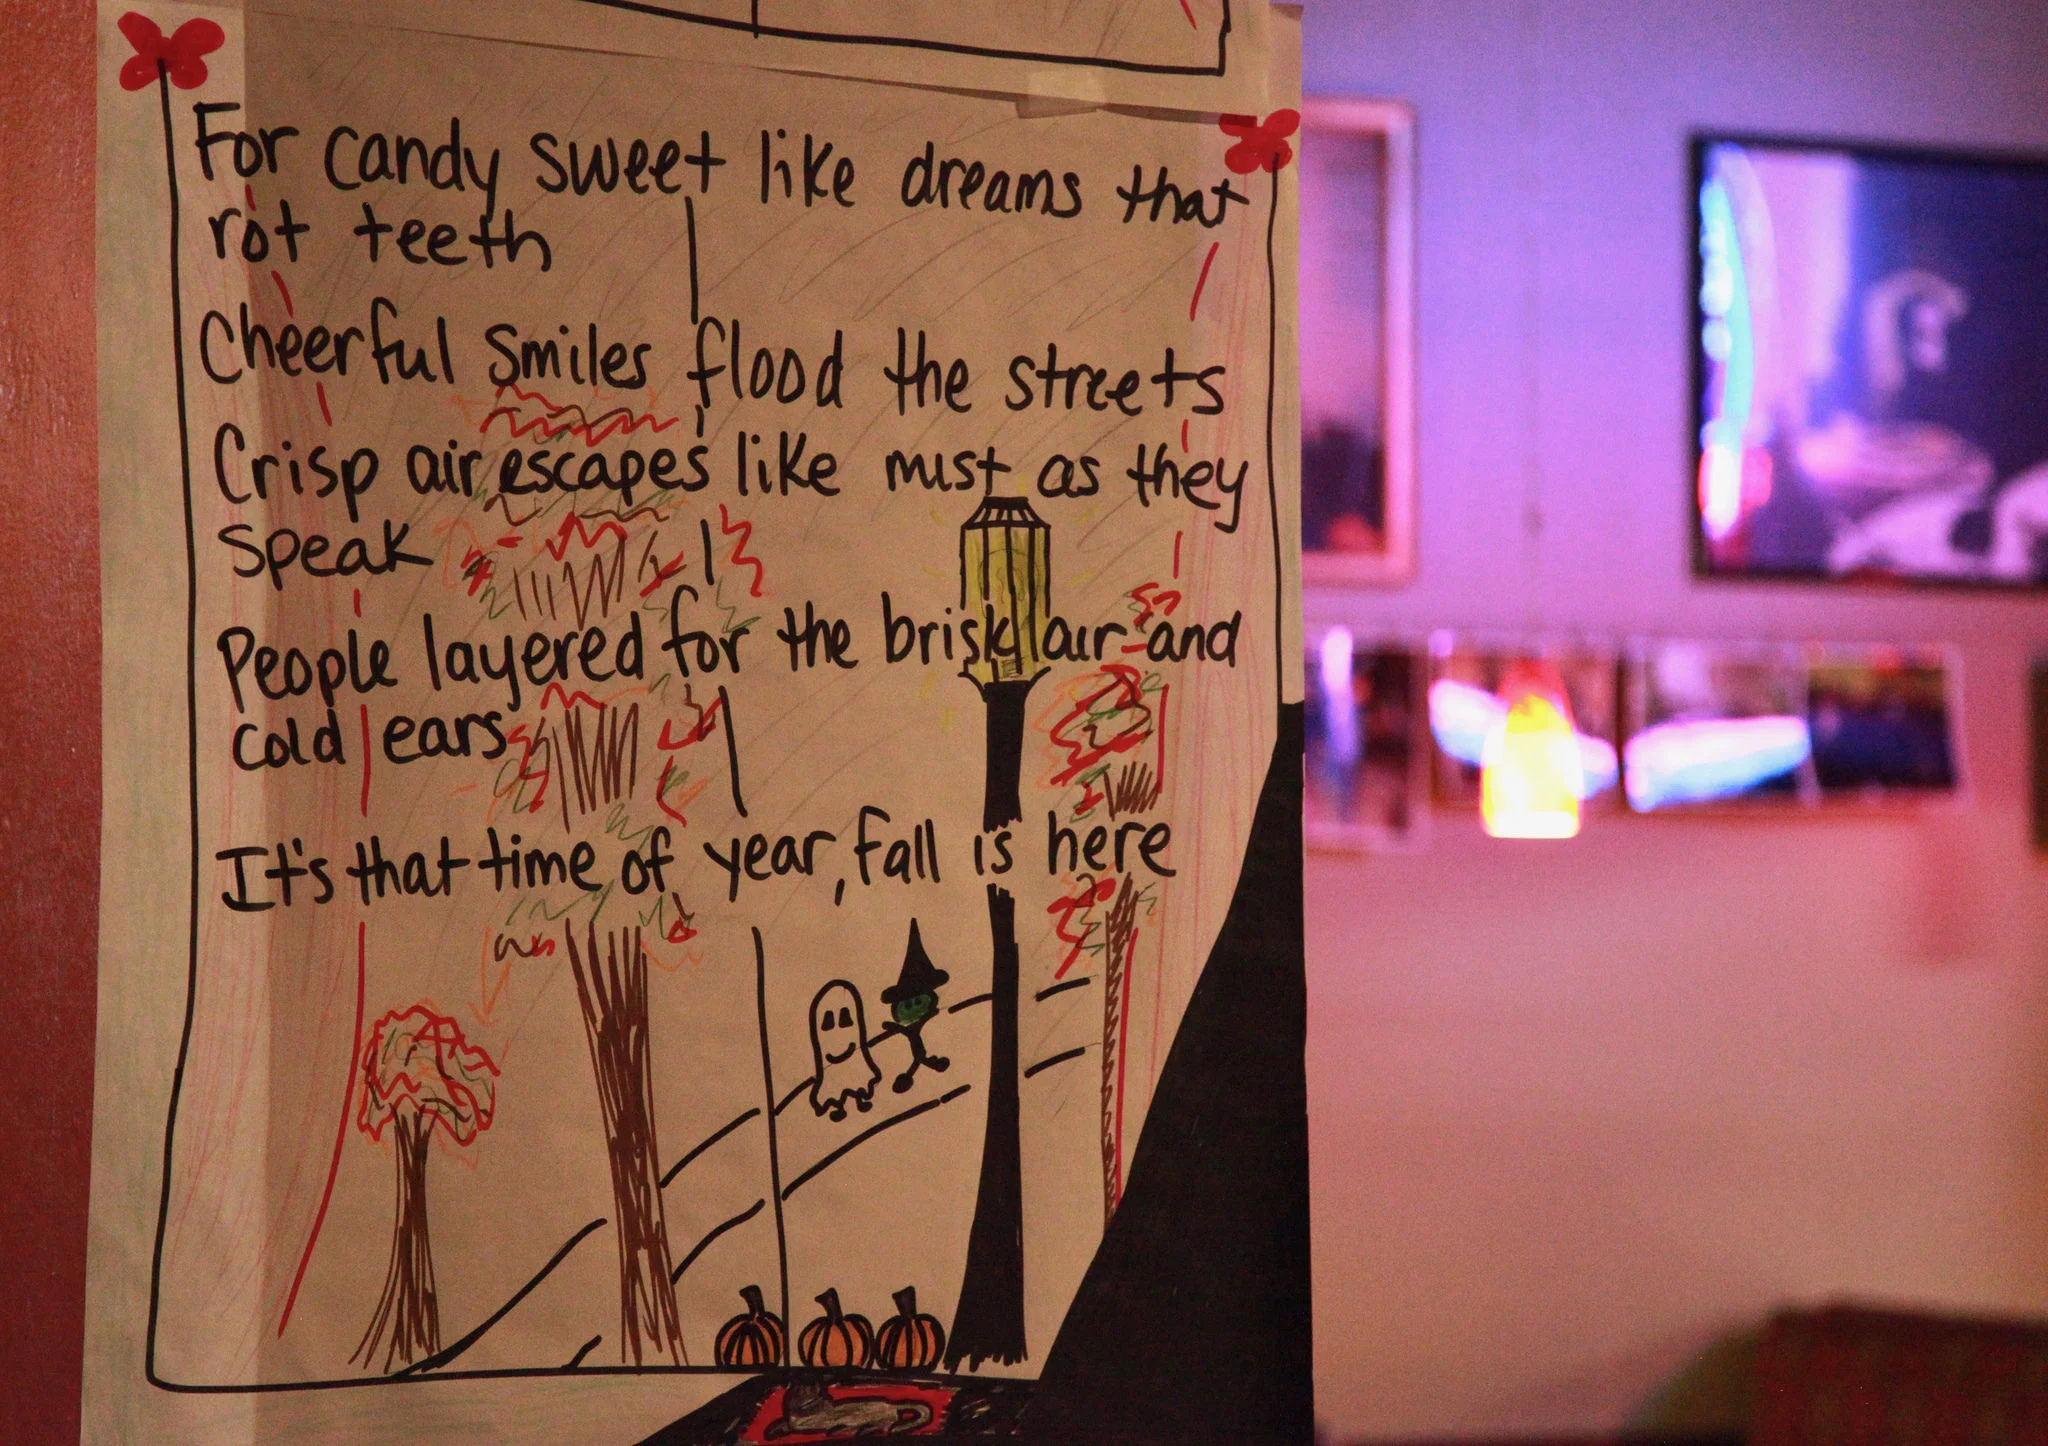 For candy sweet like dreams that
rot teeth
Cheerful smiles flood the streets
Crisp air escapes like mist as they
speak
People layered for the brisk air and
cold ears
It's that time of year, fall is here